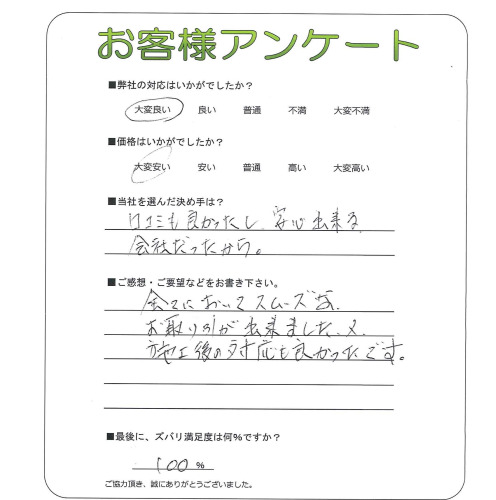 お客様アンケート
■弊社の対応はいかがでしたか？
大変良い 良い 普通 不満 大変不満
■価格はいかがでしたか？
大変安い 安い 普通 高い 大変高い
■当社を選んだ決め手は？
口コミも良かったし、安心出来る
会社だったから。
■ご感想・ご要望などをお書き下さい。
全てにおいてスムーズな、
お取り引が出来ました。又、
施工後の対応も良かったです。
■最後に、ズバリ満足度は何%ですか？
100 %
ご協力頂き、誠にありがとうございました。